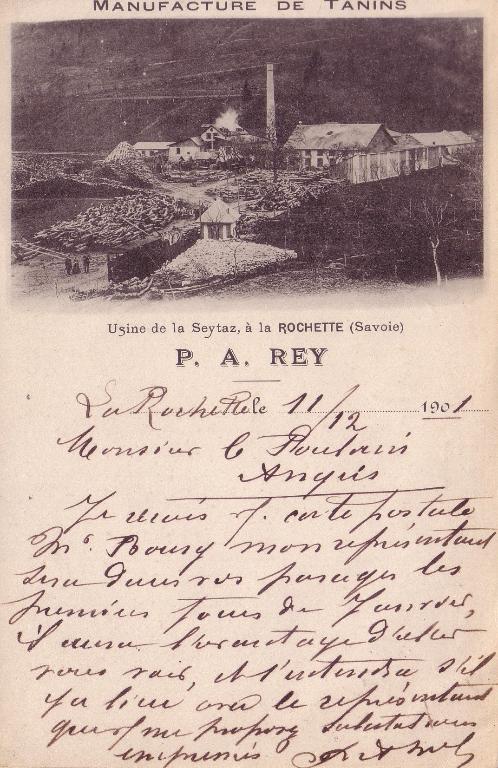 MANUFACTURE DE TANINS
Usine de la Seytaz, à la ROCHETTE (Savoie)
P. A. REY
La Rochette le 11/12 1901
Monsieur
Angers
Je carte postale
Mr. mon représentant
sera dans vos parages les
premiers jours de Janvier,
il aura l'avantage d'aller
vous voir, et s'il
y a lieu avec le représentant
que me propose salutations
empressées